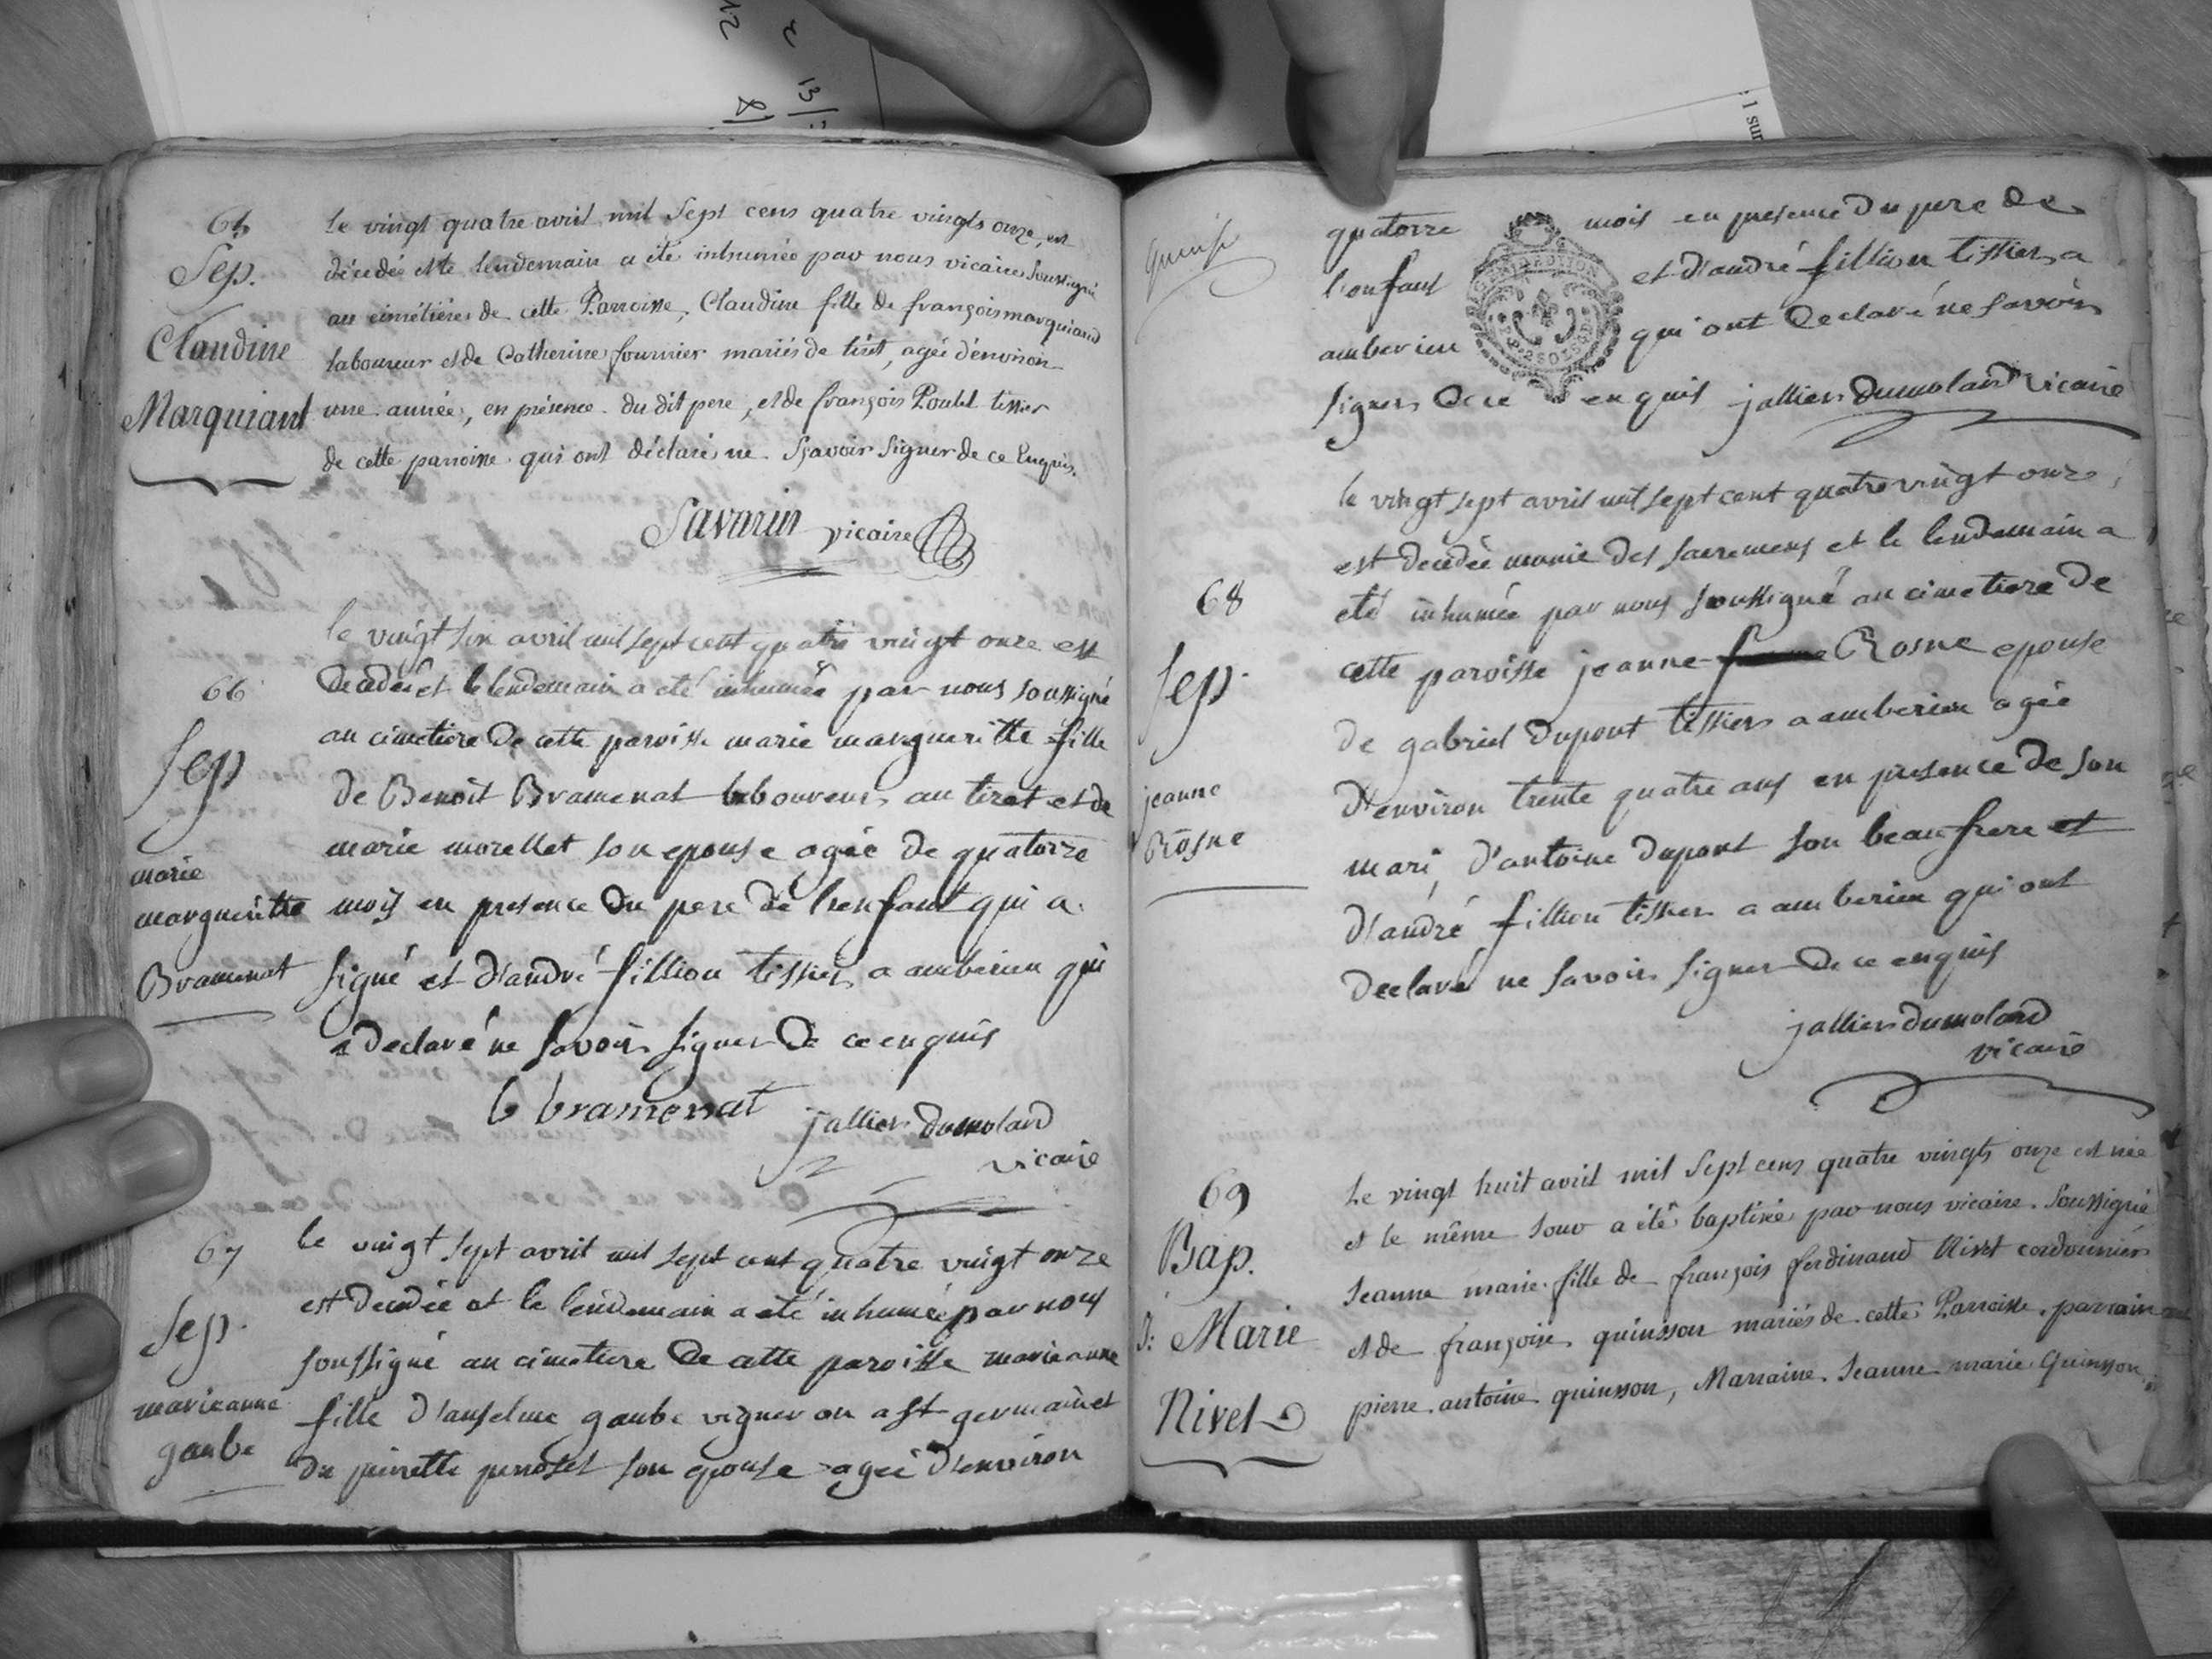 65
Sep.
Claudine
Marquiant
Le vingt quatre avril mil Sept cens quatre vingts onze, est
décédée et le lendemain a été inhumée par nous vicaire Soussigné
au cimétière de cette Parroisse, Claudine fille de françois marquiand
laboureur et de Catherine fournier mariés de tiret, agée d'environ
une année, en présence du dit pere, et de françois Poulet tissier
de cette parroisse qui ont déclaré ne Sçavoir Signer de ce Enquis.
Savarin vicaire
66
Sep
marie
margueritte
Bramenat
le vingt six avril mil sept cent quatre vingt onze est
Decedée et le lendemain a eté inhumée par nous soussigné
au cimetiere De cette paroisse marie margueritte fille
de Benoit Bramenat laboureur au tiret et de
marie morellet son epouse agée de quatorze
mois en presence Du pere de l'enfant qui a
signé et d'andré fillion tissier a amberieu qui
a Declaré ne savoir signer De ce enquis
b bramenat jallier dumolard
vicaire
67
Sep.
marieanne
gaube
le vingt sept avril mil sept cent quatre vingt onze
est decedée et le lendemain a eté inhumée par nous
soussigné au cimetiere De cette paroisse marieanne
fille d'anselme gaube vigneron a st germain et
de pierrette perrodet son epouse agée d'environ
quatorze mois en presence Du pere de
l'enfant et d'andré fillion tissier a
amberieu qui ont Declaré ne savoir
signer De ce enquis jallier dumolard vicaire
68
Sep.
jeanne
Rosne
le vingt sept avril mil sept cent quatre vingt onze
est decedée munie des sacremens et le lendemain a
eté inhumée par nous soussigné au cimetiere De
cette paroisse jeanne Rosne epouse
de gabriel dupont tissier a amberieu agée
d'environ trente quatre ans en presence de son
mari, d'antoine dupont son beau frere et
d'andré fillion tissier a amberieu qui ont
declaré ne savoir signer De ce enquis
jallier dumolard
vicaire
69
Bap.
J: Marie
Nivet
Le vingt huit avril mil Sept cens quatre vingts onze est née
et le même Jour a été baptisée par nous vicaire Soussigné
Jeanne marie fille de françois ferdinand Nivet cordonnier
et de françoise quinsson mariés de cette Parroisse, parrain
pierre antoine quinsson, Marraine Jeanne marie Quinsson